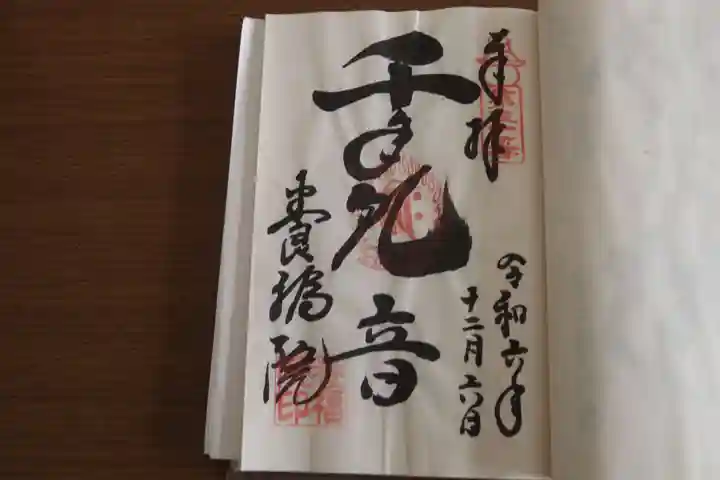 奉拝
令和六年
十二月六日
千手観音
養福院